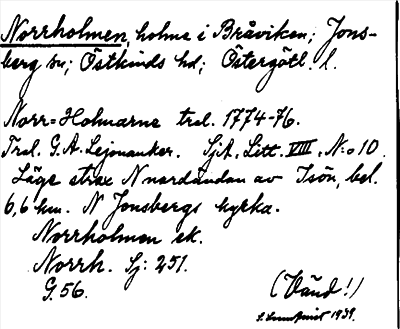 Norrholmen, holme i Bråviken; Jons-
berg sn; Östkinds hd; Östergötl. l.
Norr=Holmarne tral. 1774-76.
Tral. G. A. Lejonanker. SjA, Litt. VIII, N:o 10.
Läge strax N nordändan av Isön, bel.
6,6 km. N Jonsbergs kyrka.
Norrholmen ek.
Norrh. Sj: 251.
G. 56.
(Vänd!)
1939.